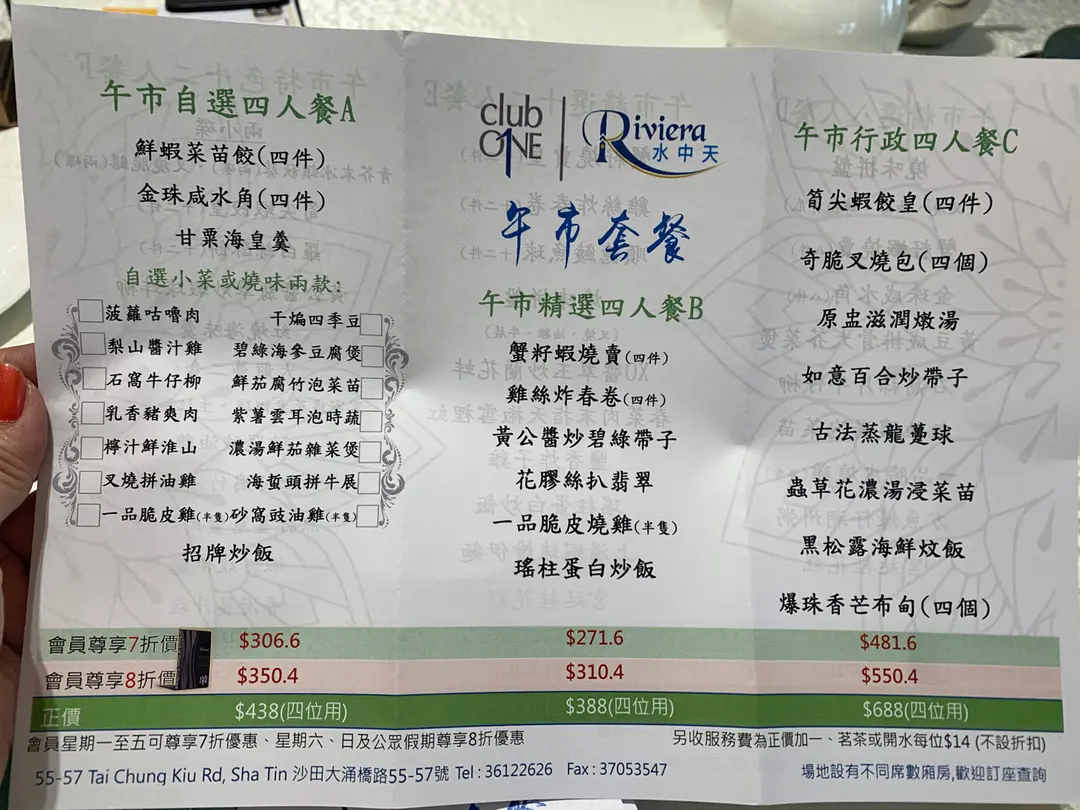 午市自選四人餐A
鮮蝦菜苗餃(四件)
金珠咸水角(四件)
甘粟海皇羹
自選小菜或燒味兩款:
菠蘿咕嚕肉 干煸四季豆
梨山醬汁雞 碧綠海參豆腐煲
石窩牛仔柳 鮮茄腐竹泡菜苗
乳香豬爽肉 紫薯雲耳泡時蔬
檸汁鮮淮山 濃湯鮮茄雜菜煲
叉燒拼油雞 海蜇頭拼牛展
一品脆皮雞(半隻) 砂窩豉油雞(半隻)
招牌炒飯
club ONE
Riviera
水中天
午市套餐
午市精選四人餐B
蟹籽蝦燒賣(四件)
雞絲炸春卷(四件)
黃公醬炒碧綠帶子
花膠絲扒翡翠
一品脆皮燒雞(半隻)
瑤柱蛋白炒飯
午市行政四人餐C
筍尖蝦餃皇(四件)
奇脆叉燒包(四個)
原盅滋潤燉湯
如意百合炒帶子
古法蒸龍躉球
蟲草花濃湯浸菜苗
黑松露海鮮炆飯
爆珠香芒布甸(四個)
會員尊享7折價 $306.6 $271.6 $481.6
會員尊享8折價 $350.4 $310.4 $550.4
正價 $438(四位用) $388(四位用) $688(四位用)
會員星期一至五可尊享7折優惠、星期六、日及公眾假期尊享8折優惠
另收服務費為正價加一、茗茶或開水每位$14 (不設折扣)
55-57 Tai Chung Kiu Rd, Sha Tin 沙田大涌橋路55-57號 Tel : 36122626 Fax : 37053547
場地設有不同席數廂房,歡迎訂座查詢